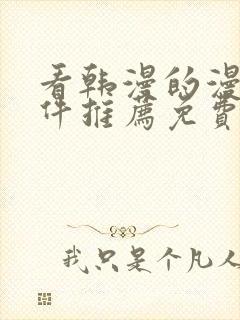 看韩漫的漫
件推薦免費
我只是个凡人